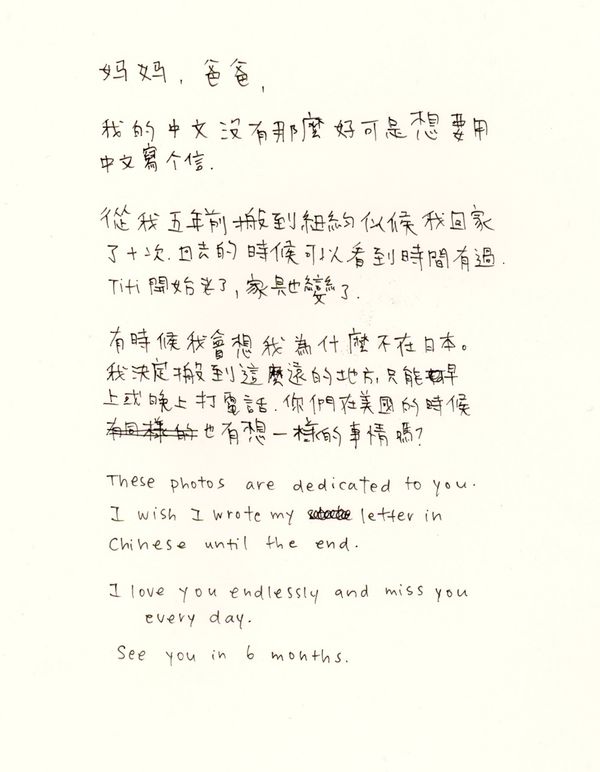 妈妈，爸爸，
我的中文没有那麼好可是想要用
中文寫个信.
從我五年前搬到紐約似候我回家
了十次.回去的時候可以看到時間有過.
TiTi 開始老了,家具也變了.
有時候我會想我為什麼不在日本。
我決定搬到這麼遠的地方,只能早
上或晚上打電話.你們在美國的時候
有同樣的也有想一樣的事情嗎?
These photos are dedicated to you.
I wish I wrote my letter in
Chinese until the end.
I love you endlessly and miss you
every day.
See you in 6 months.